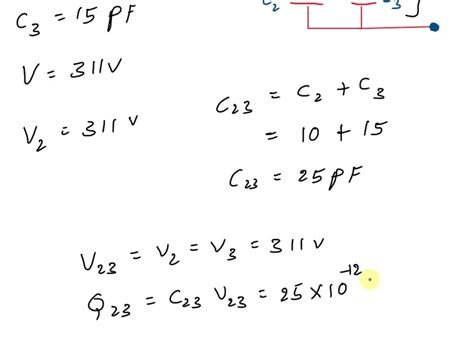 C₂ ₃
C₃ = 15 PF
V = 311V
V₂ = 311 V
C₂₃ = C₂ + C₃
= 10 + 15
C₂₃ = 25 PF
V₂₃ = V₂ = V₃ = 311 V
Q₂₃ = C₂₃ V₂₃ = 25 × 10⁻¹²